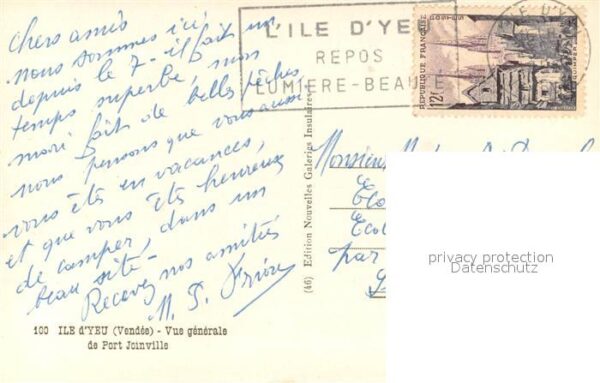 Chers amis
nous sommes ici
depuis le 7 - il fait un
temps superbe, mon
mari fait de belles pêches
nous pensons que vous aussi
vous êtes en vacances,
et que vous êtes heureux
de camper, dans un
beau site -
Recevez nos amitiés
M. P.
100 ILE d'YEU (Vendée) - Vue générale
de Port Joinville
(46) Edition Nouvelles Galeries Insulaires
L'ILE D'YEU
REPOS
LUMIERE-BEAUT
REPUBLIQUE FRANÇAISE
12F
Monsieur
Ecol
par
privacy protection
Datenschutz